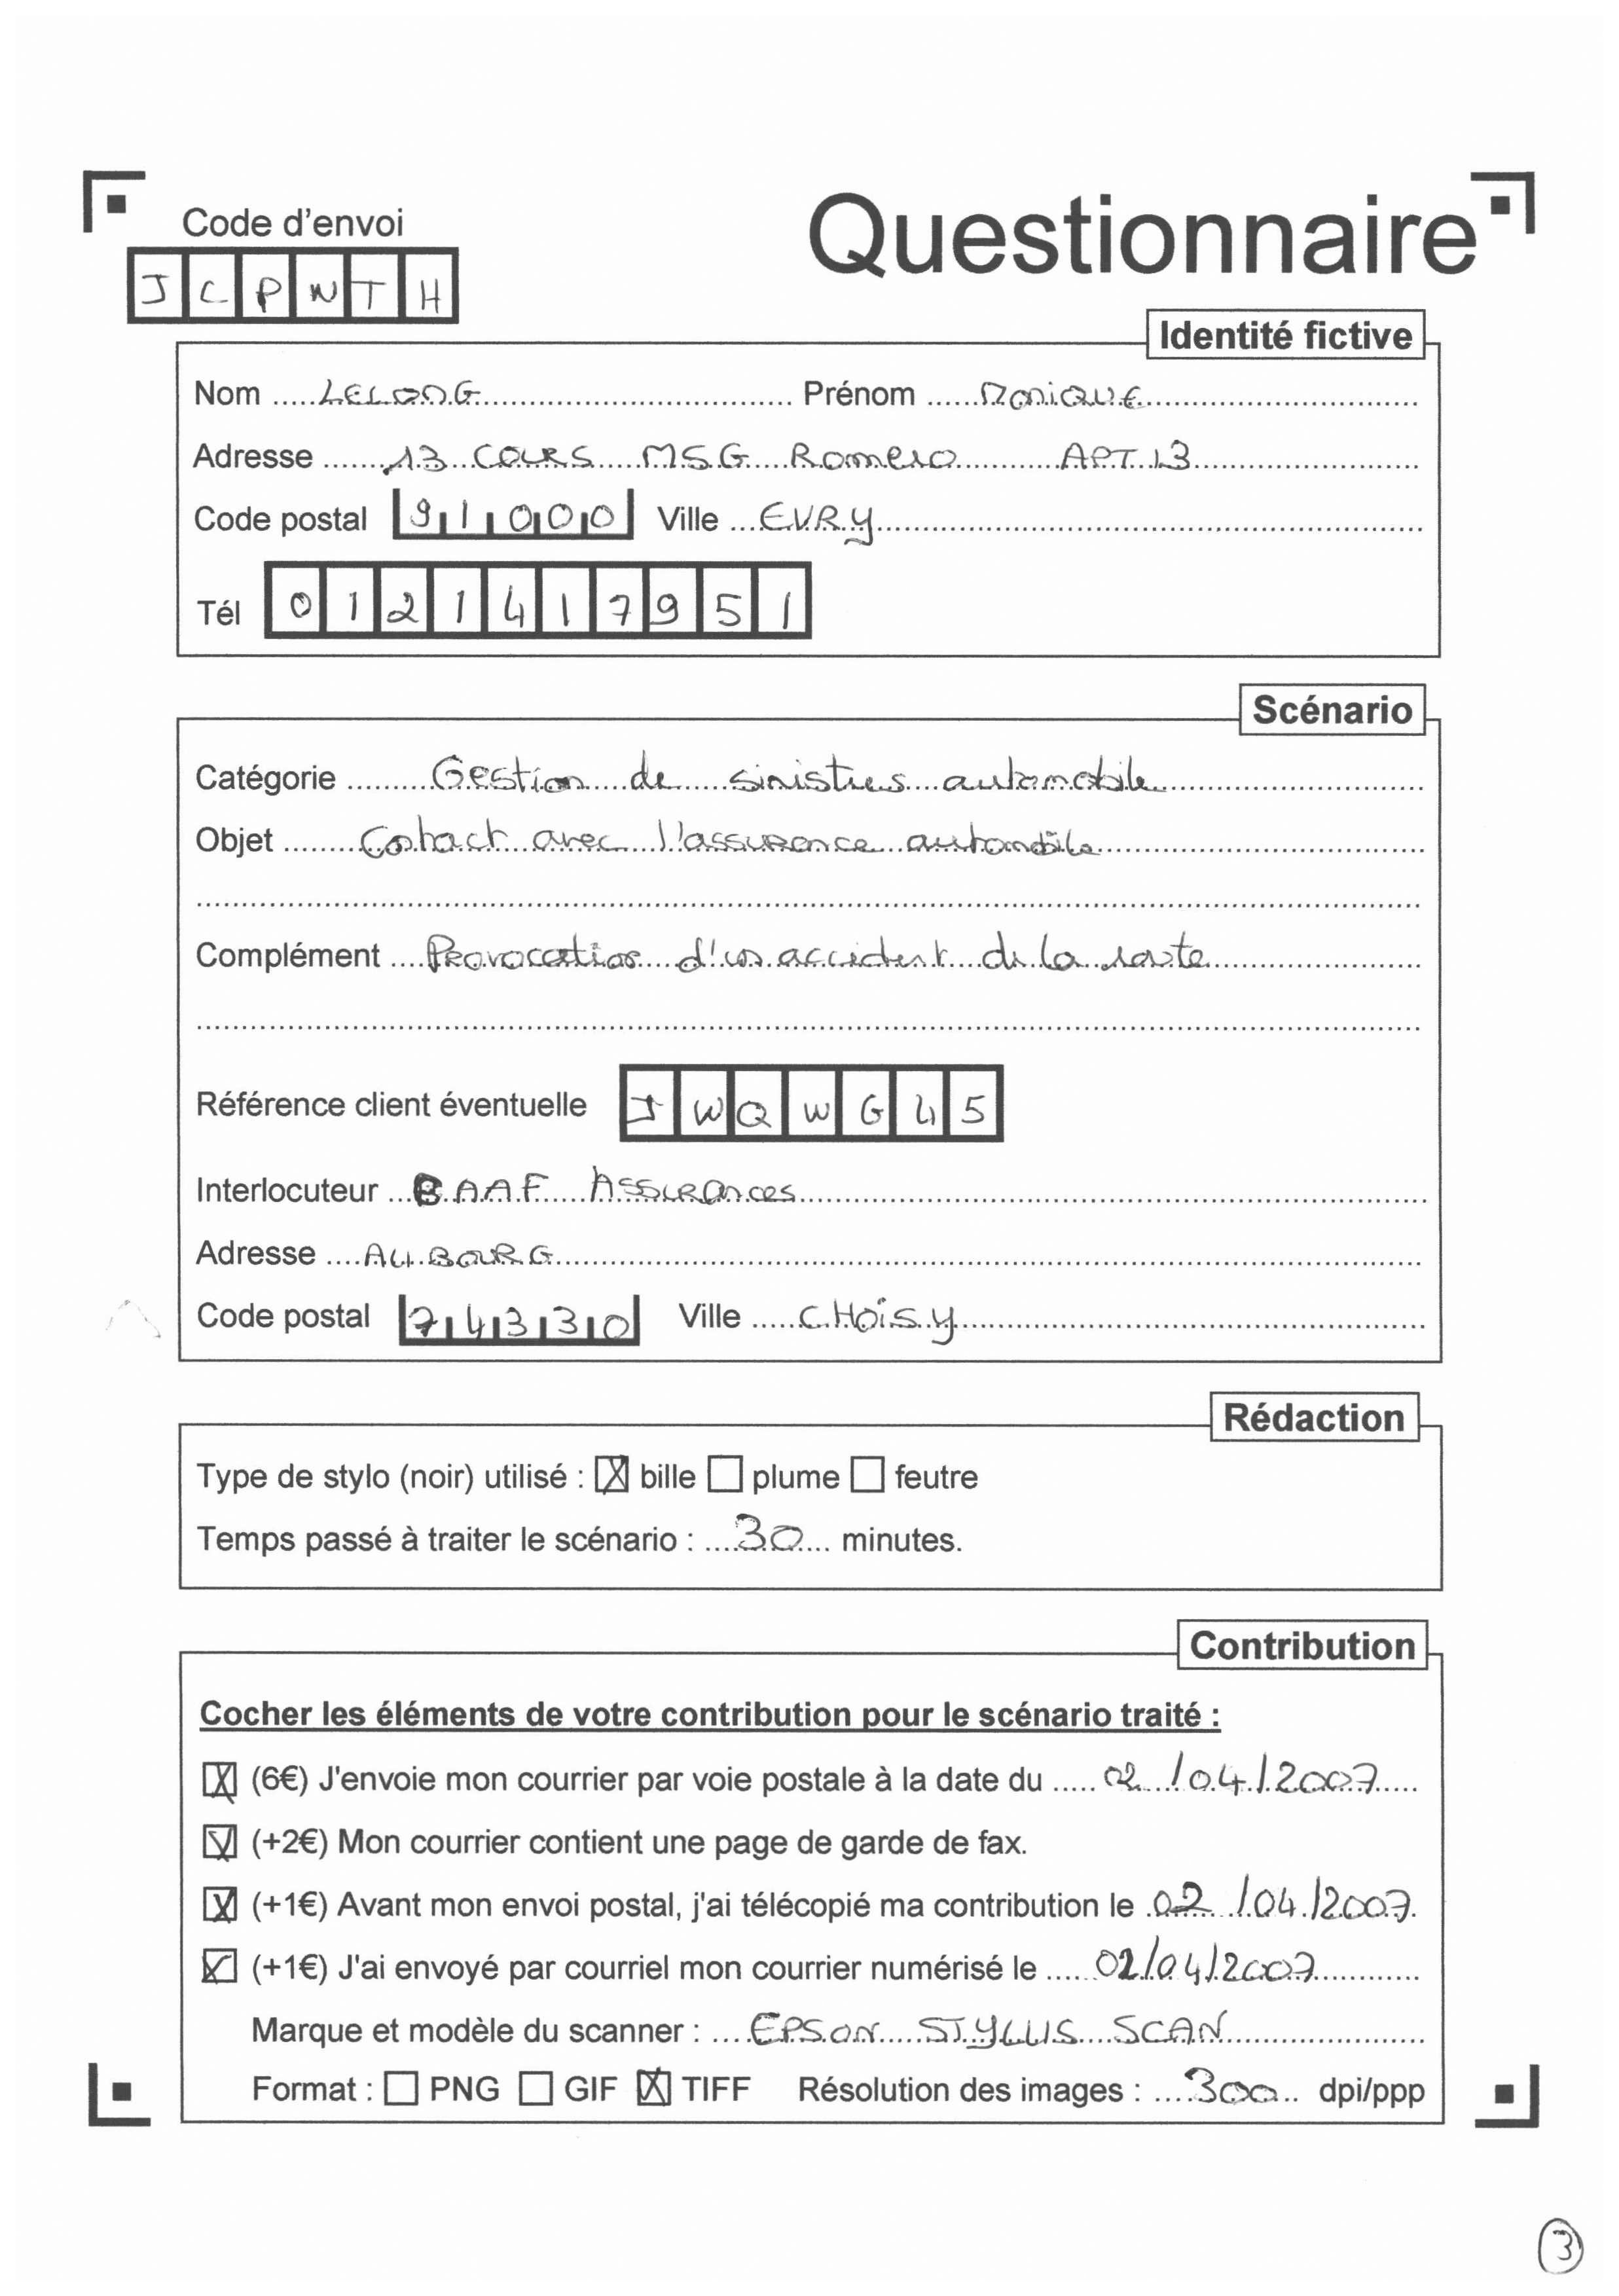 Code d'envoi
Questionnaire
JCPWTH
Identité fictive
Nom LELONG Prénom MONIQUE
Adresse 13 COURS MSG Romero APT 13
Code postal 91000 Ville EVRY
Tél 0121417951
Scénario
Catégorie Gestion de sinistres automobile
Objet Contact avec l'assurance automobile
Complément Provocation d'un accident de la route
Référence client éventuelle JWQWG45
Interlocuteur BAAF Assurances
Adresse AU BOURG
Code postal 74330 Ville CHOISY
Rédaction
Type de stylo (noir) utilisé : ☒ bille ☐ plume ☐ feutre
Temps passé à traiter le scénario : 30 minutes.
Contribution
Cocher les éléments de votre contribution pour le scénario traité :
☒ (6€) J'envoie mon courrier par voie postale à la date du 02/04/2007
☒ (+2€) Mon courrier contient une page de garde de fax.
☒ (+1€) Avant mon envoi postal, j'ai télécopié ma contribution le 02/04/2007.
☒ (+1€) J'ai envoyé par courriel mon courrier numérisé le 02/04/2007
Marque et modèle du scanner : EPSON STYLUS SCAN
Format : ☐ PNG ☐ GIF ☒ TIFF Résolution des images : 300 dpi/ppp
3